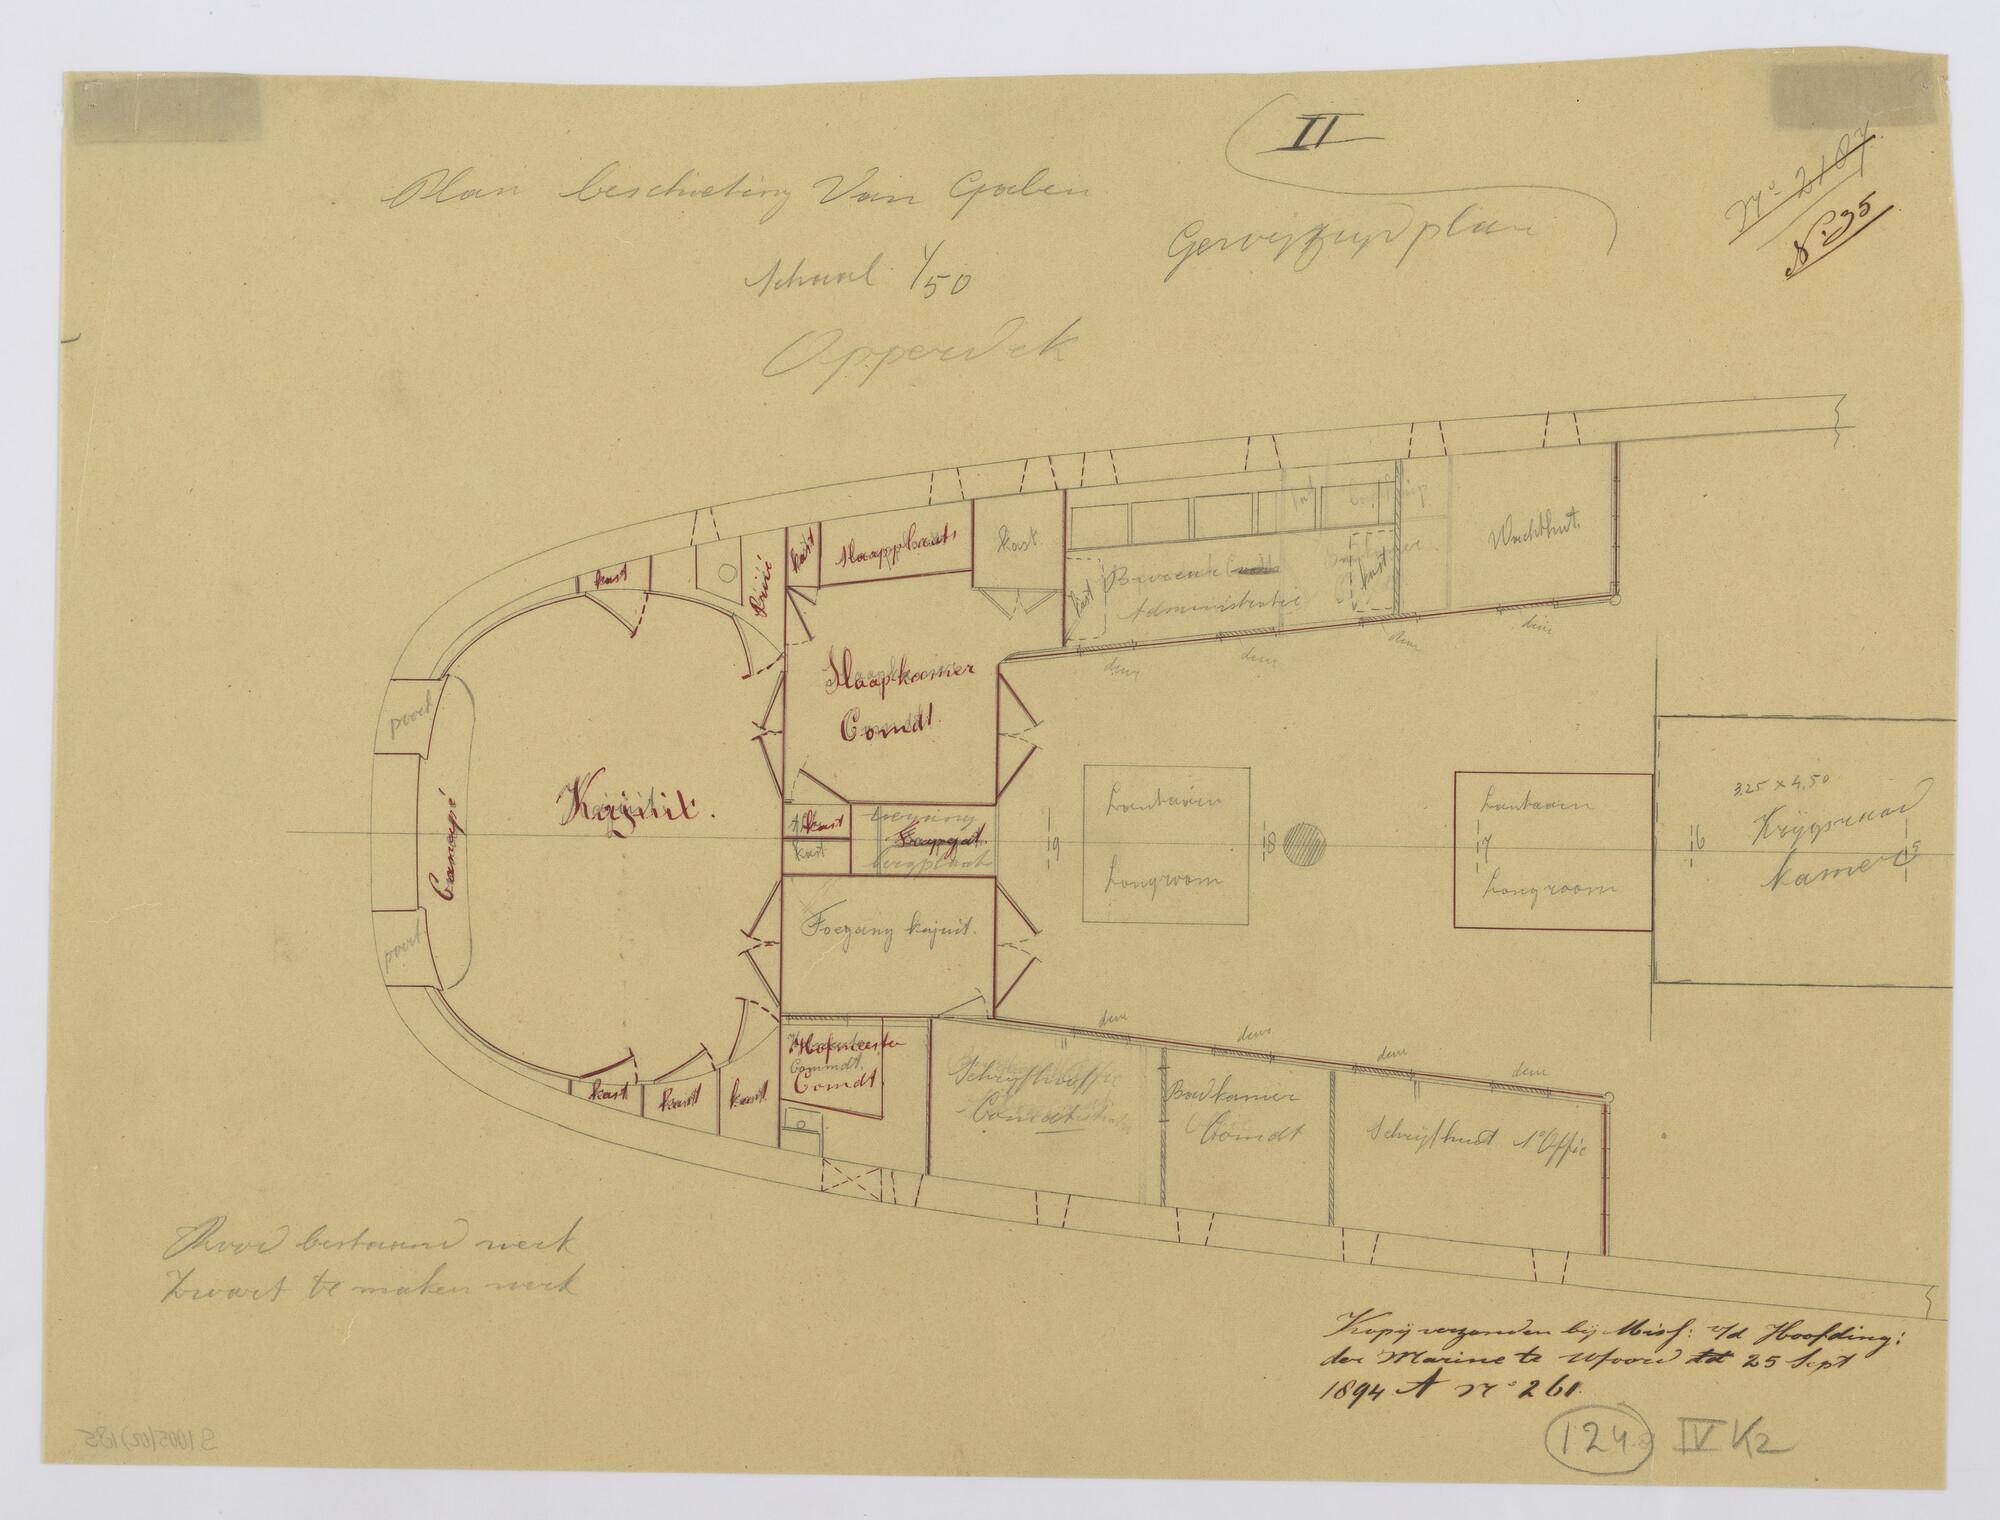 II
Plan beschieting Van Galen
Gewijzigd plan
Schaal 1/50
Opperdek
No 2187
No 35
kast
Privé
kast
Slaapplaats
kast
Wachthut
kast
Bureau
Administratie
kast
deur
deur
deur
deur
Slaapkamer
Comdt.
poort
Canapé
poort
Kajuit.
kast
kast
toegang
Trapgat.
bergplaats
Toegang kajuit.
19
Lantaarn
Longroom
18
Lantaarn
17
Longroom
3.25 x 4.50
Krijgsraad
kamer
16
15
deur
deur
deur
deur
Hofmeester
Commdt.
Comdt.
kast
kast
kast
Comdt
Badkamer
Comdt
Schrijfhut 1e Offic
Rood bestaand werk
Zwart te maken werk
Kopij verzonden bij Misf: v/d Hoofding:
der Marine te Wfoord dd 25 Sept
1894 A No 261.
124
IV K2
S 1005(02)185